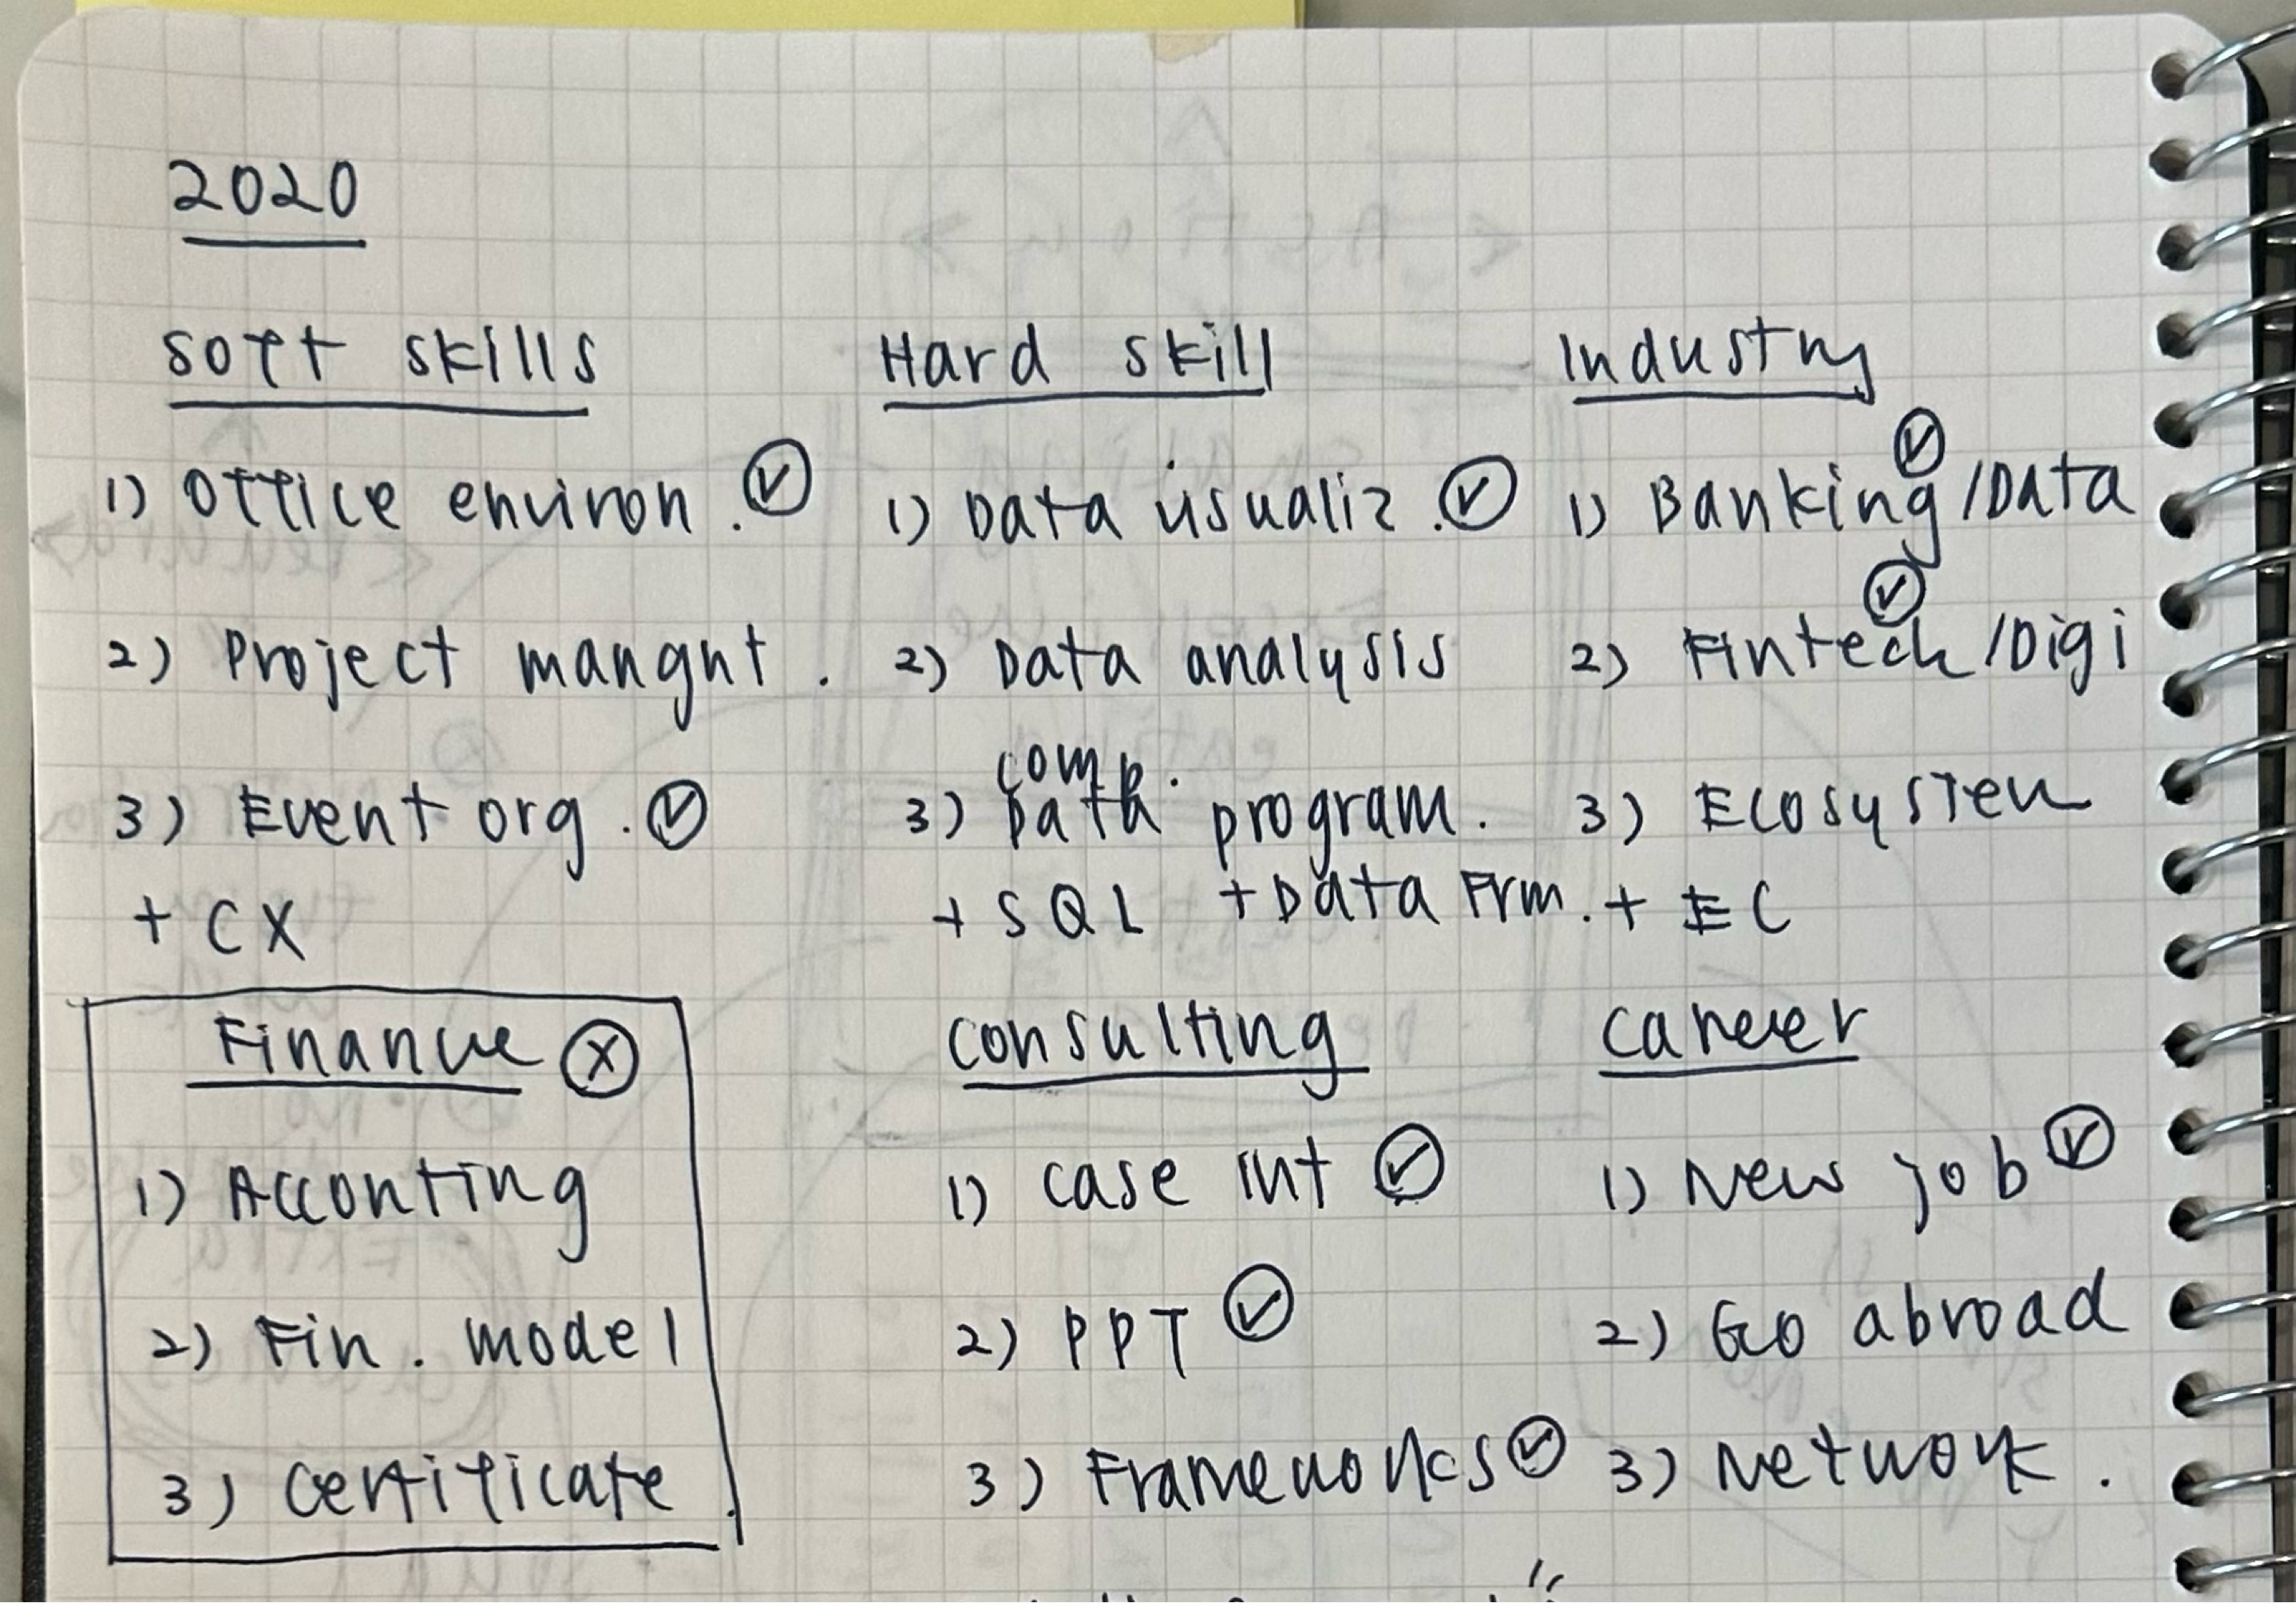 2020
Soft skills
1) Office environ. ✓
2) Project mangnt.
3) Event org. ✓
+ CX
Hard skill
1) Data visualiz. ✓
2) Data analysis
comp.
3) Data program.
+ SQL + Data Frm.
Industry
1) Banking ✓ /Data
2) Fintech ✓ /Digi
3) Ecosystem
+ EC
Finance X
1) Acconting
2) Fin. model
3) Certificate.
Consulting
1) Case int ✓
2) PPT ✓
3) Frameworks ✓
Career
1) New job ✓
2) Go abroad
3) Network.